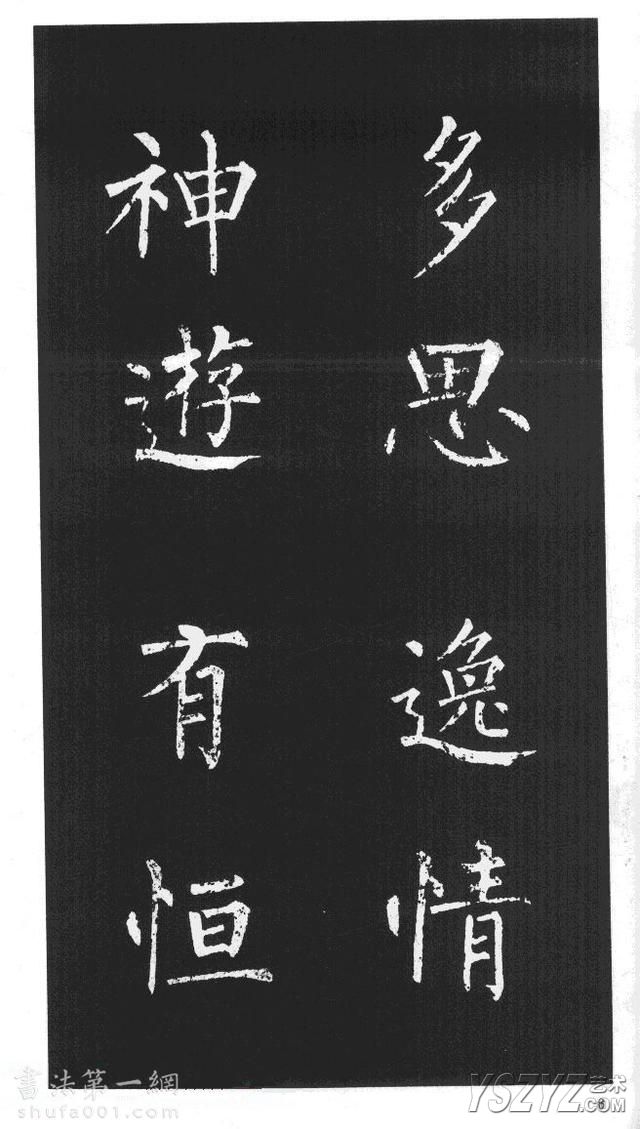 多思逸情
神遊有恒
書法第一網
shufa001.com
YSZYZ艺术
.COM
6